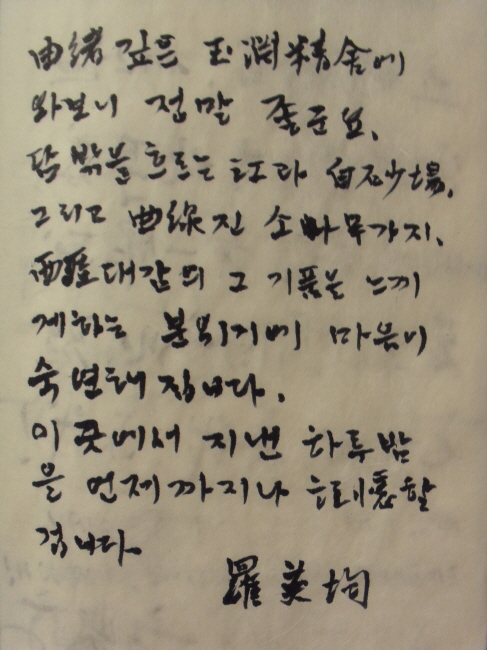 由緖 깊은 玉淵精舍에
와보니 정말 좋군요.
담 밖을 흐르는 江과 白沙場,
그리고 曲線진 소나무가지,
西厓대감의 그 기품을 느끼
게하는 분위기에 마음이
숙연해 집니다.
이 곳에서 지낸 하루밤
을 언제까지나 記憶할
겁니다.
羅英均